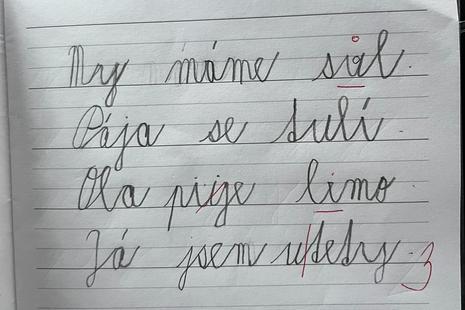 My máme sůl.
Pája se tulí.
Ola pije limo.
Já jsem u tety. 3